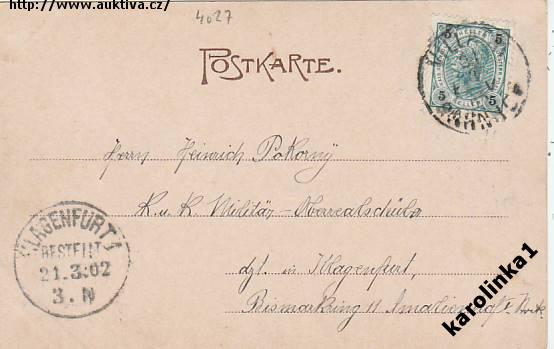 http://www.auktiva.cz/
4027
POSTKARTE.
5 5
HELLER
5 5
BAHNHOF
Herrn Heinrich Pokorný
K. u. K. Militär-Oberrealschule
dzt. in Klagenfurt,
Bismarkring 11
KLAGENFURT 1
BESTELLT
21.3.02
3.N
karolinka1